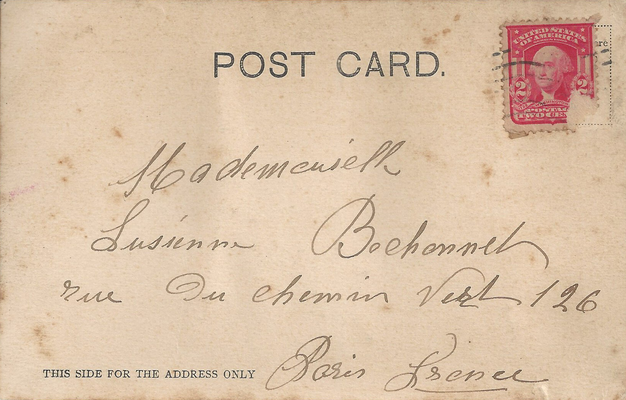 POST CARD.
UNITED STATES
OF AMERICA
2 2
POSTAGE
TWO CEN
are
Mademoiselle
Lusienne Bochonnet
rue Du chemin Vert 126
Paris France
THIS SIDE FOR THE ADDRESS ONLY